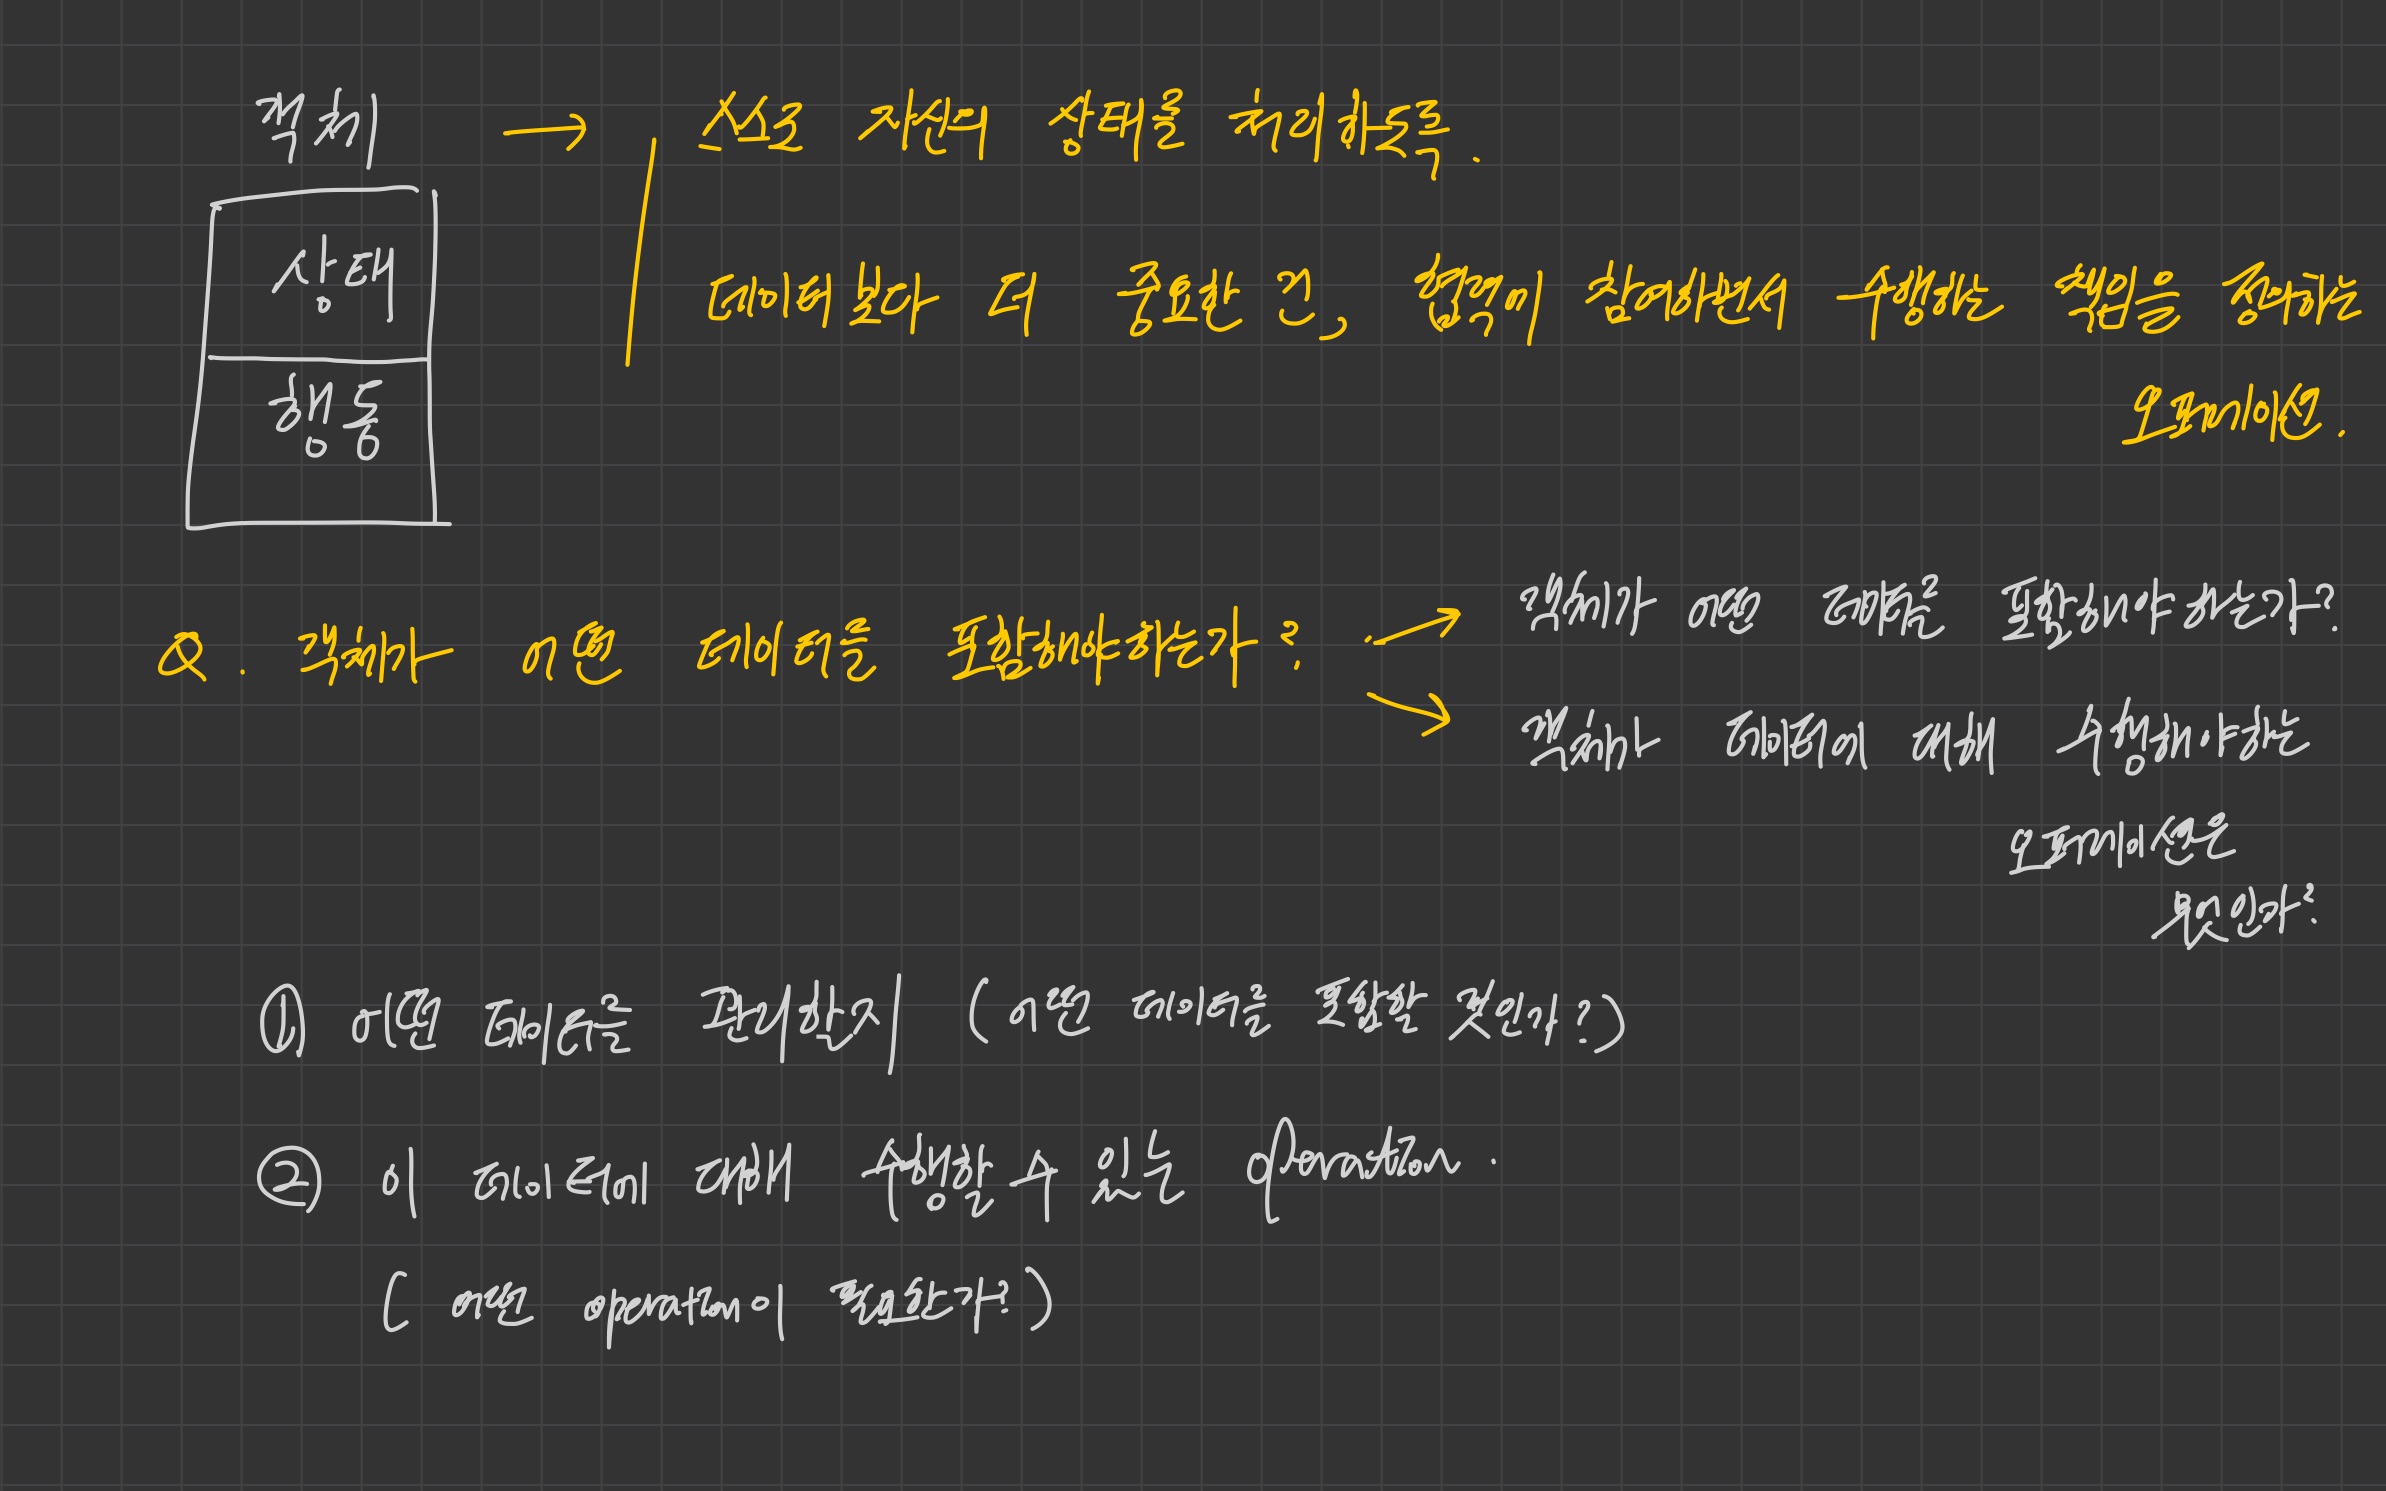 객체 → 스스로 자신의 상태를 처리하도록.
상태
데이터보다 더 중요한 건, 협력에 참여하면서 수행하는 책임을 정의하는
행동
오퍼레이션.
Q. 객체가 어떤 데이터를 포함해야하는가?
객체가 어떤 데이터를 포함해야 하는가?
객체가 데이터에 대해 수행해야하는
오퍼레이션은
무엇인가?
① 어떤 데이터를 관리할지 (어떤 데이터를 포함할 것인가?)
② 이 데이터에 대해 수행할 수 있는 operation.
( 어떤 operation이 필요한가?)